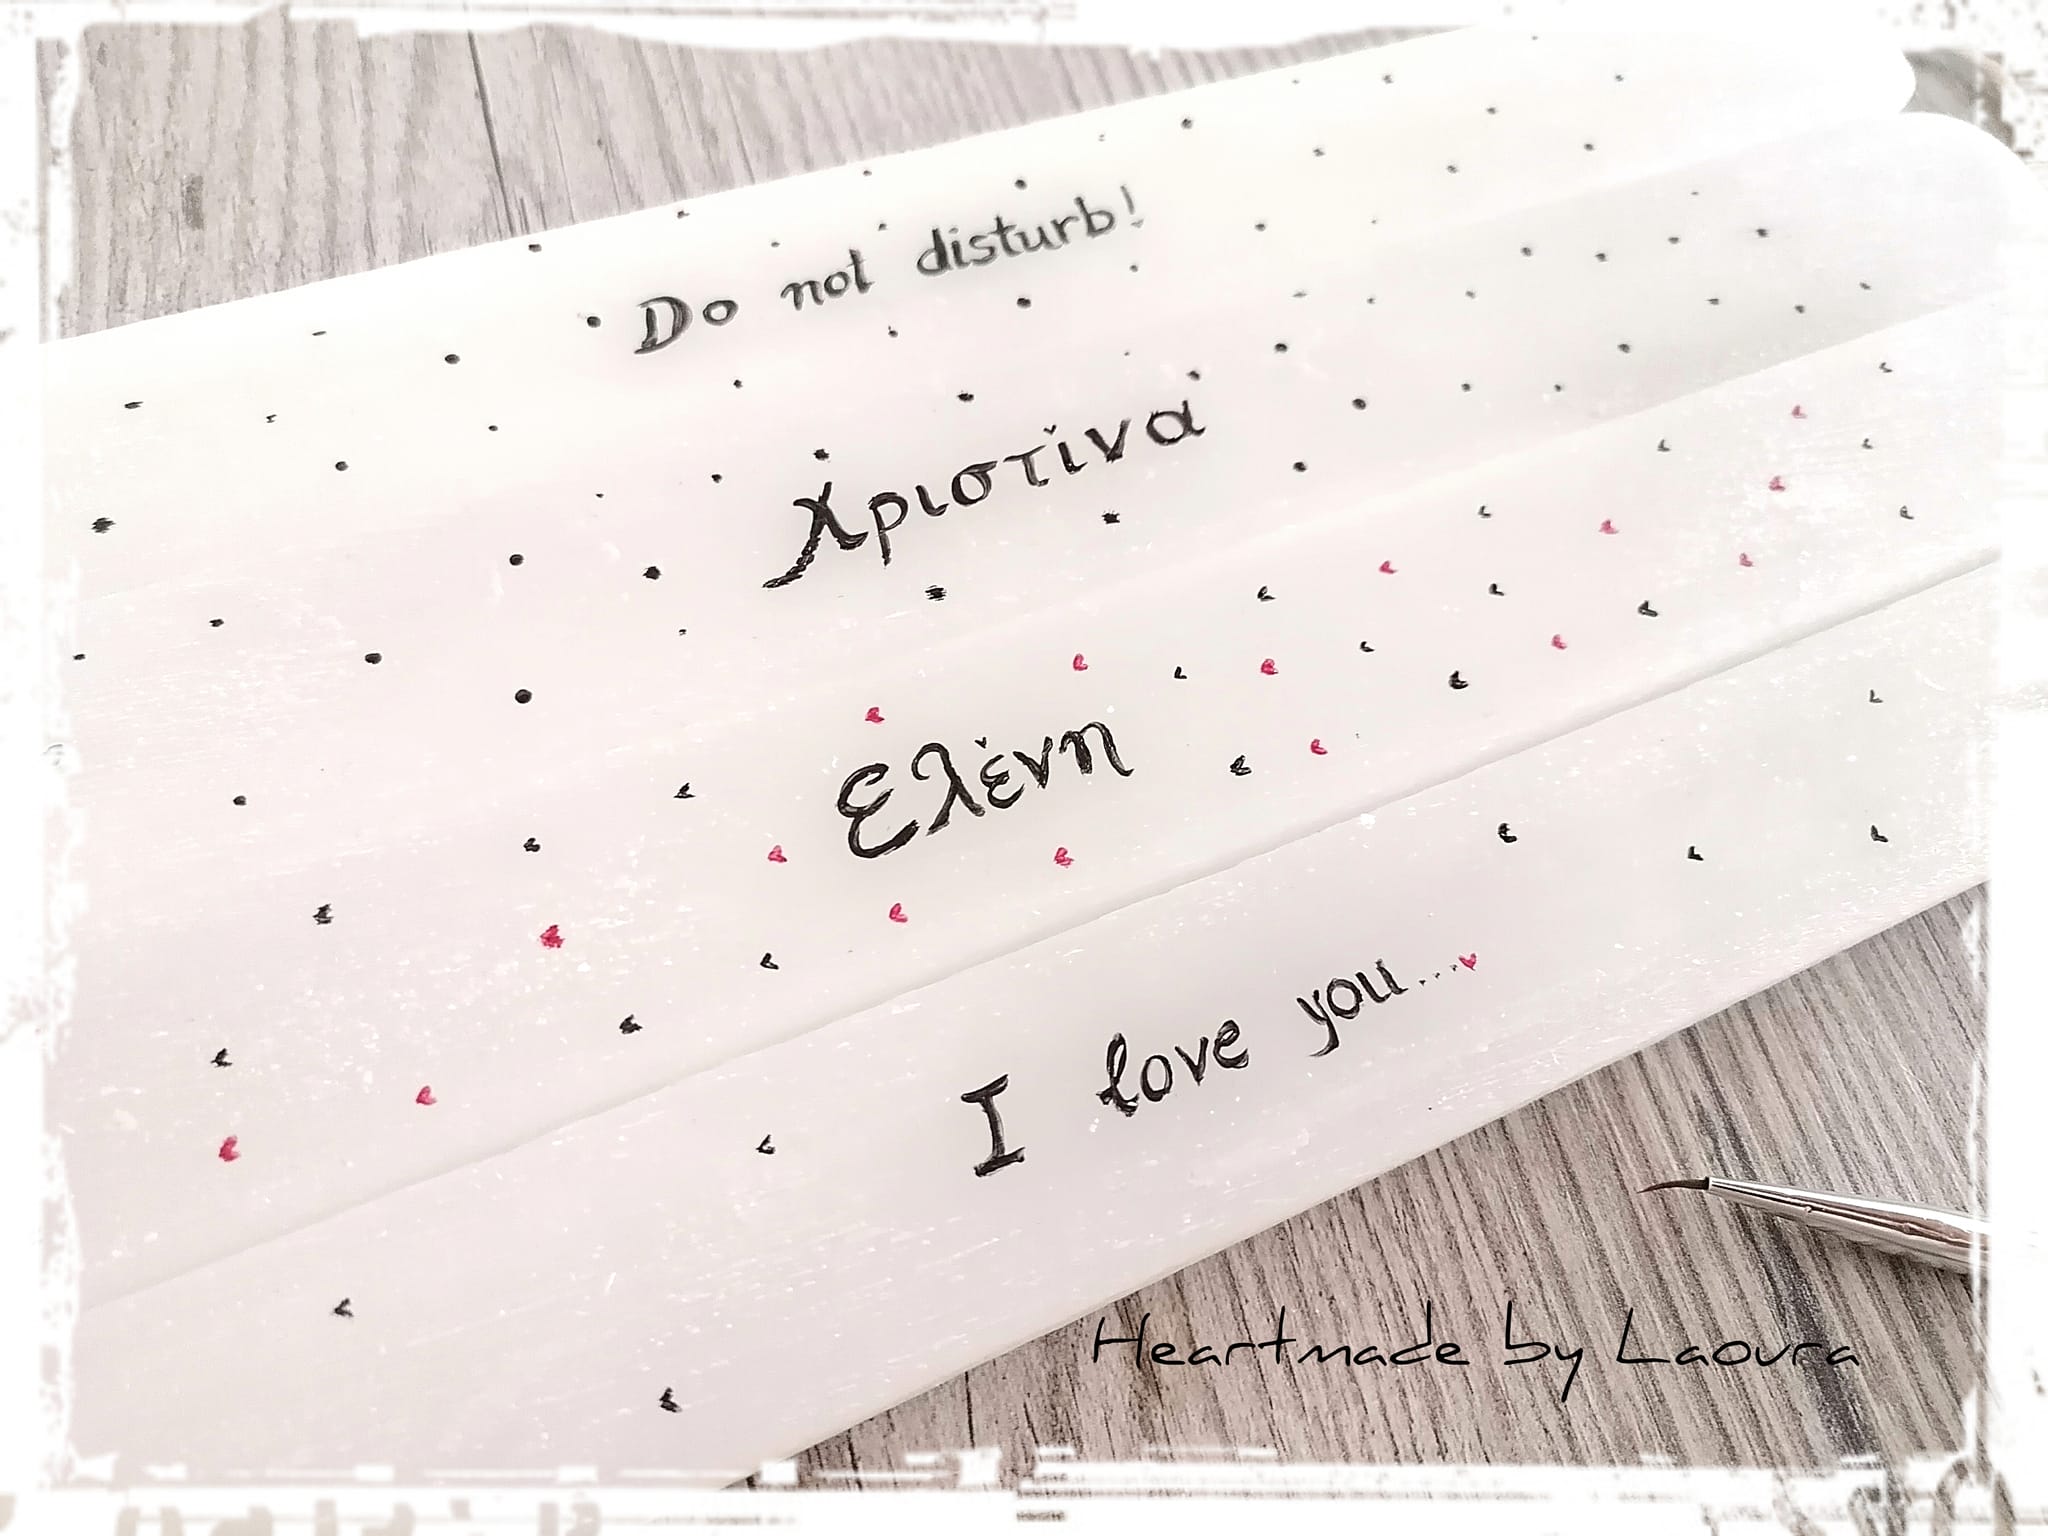 Do not disturb!
Χριστίνα
Ελένη
I love you...
Heartmade by Laoura